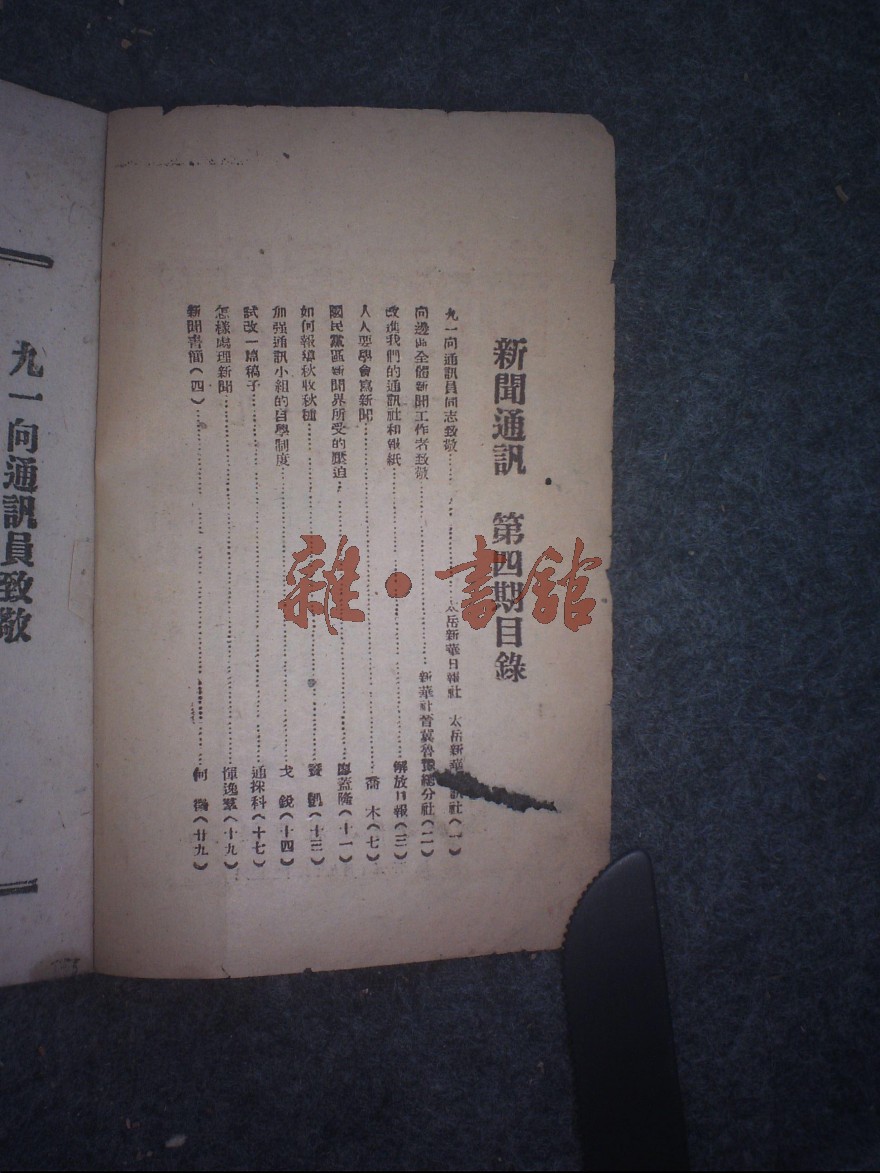 新聞通訊　第四期目錄
九一向通訊員同志致敬……太岳新華日報社　太岳新華 訊社（一）
向邊區全體新聞工作者致敬……新華社晉冀魯豫總分社（二）
改進我們的通訊社和報紙……解放日報（三）
人人要學會寫新聞……喬　木（七）
國民黨區新聞界所受的壓迫……廖蓋隆（十一）
如何報導秋收秋種……（十三）
加强通訊小組的自學制度……戈　銳（十四）
試改一篇稿子……通採科（十七）
怎樣處理新聞……惲逸羣（十九）
新聞書簡（四）……何　微（廿九）
九一向通訊員致敬
雜·書館